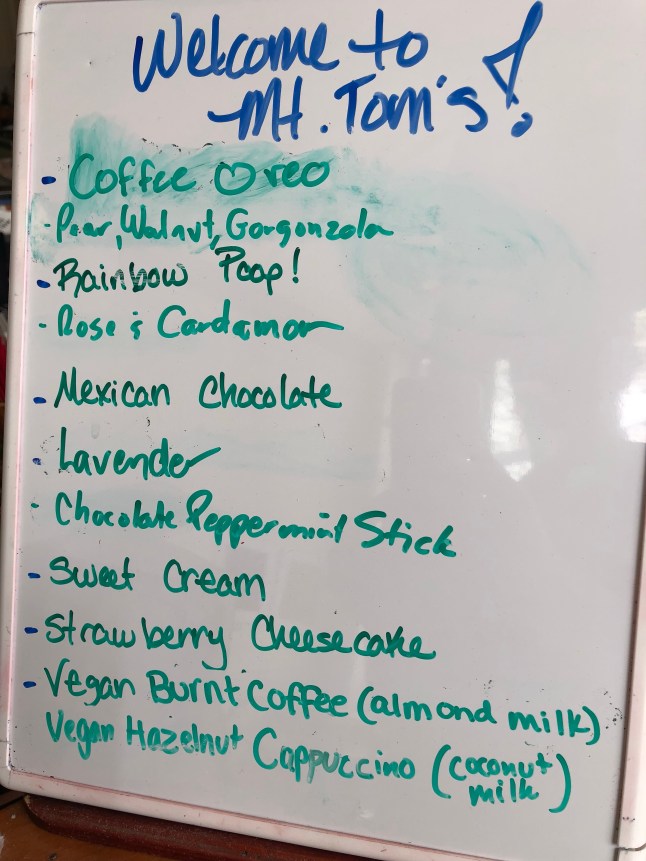 Welcome to
Mt. Tom's!
- Coffee Oreo
- Pear, Walnut, Gorgonzola
- Rainbow Poop!
- Rose & Cardamon
- Mexican Chocolate
- Lavender
- Chocolate Peppermint Stick
- Sweet Cream
- Strawberry Cheesecake
- Vegan Burnt Coffee (almond milk)
Vegan Hazelnut Cappuccino (coconut
milk)